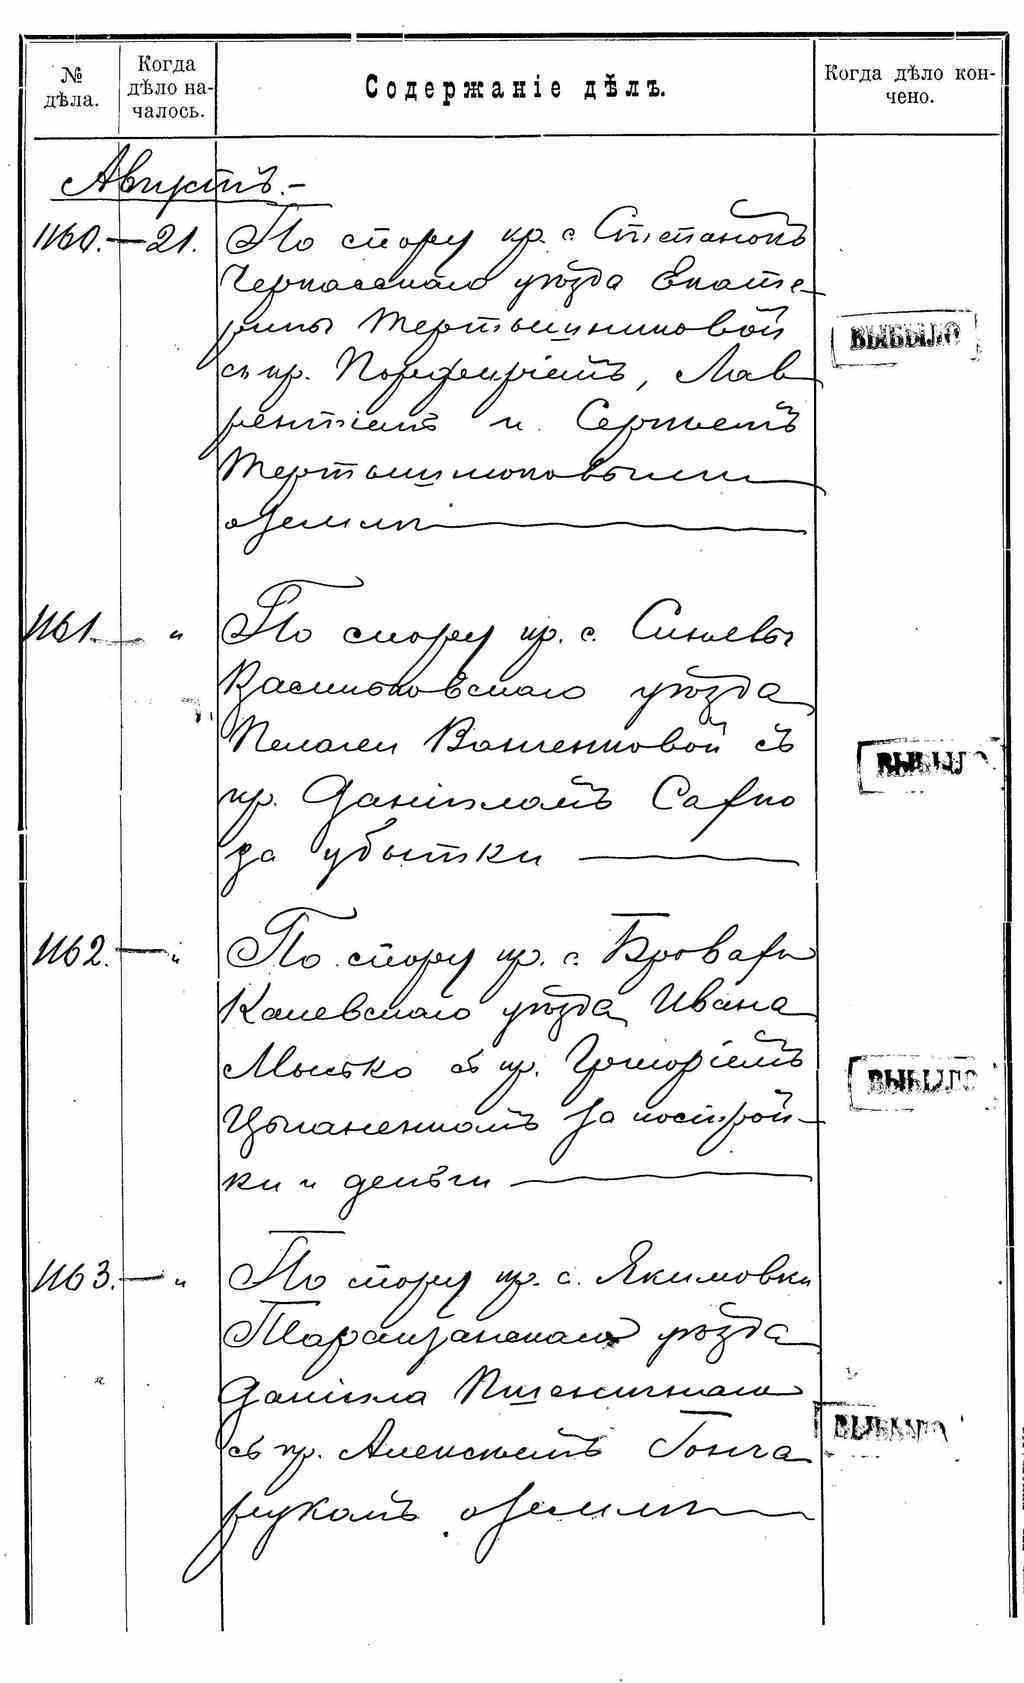 №
дѣла.
Когда
дѣло на-
чалось.
Содержаніе дѣлъ.
Когда дѣло кон-
чено.
Августъ.-
1160.—21. По спору кр. с. Степанокъ
Черкасскаго уѣзда Екате-
рины Жертышниковой
съ кр. Порфиріемъ, Лав
рентіемъ и Сергѣемъ
о земли
ВЫБЫЛО
1161.— „ По спору кр. с. Синявы
Васильковскаго уѣзда
Пелагеи Ваненковой съ
кр. Даніиломъ Сафко
за убытки
ВЫБЫЛО
1162.— „ По спору кр. с. Бровахи
Каневскаго уѣзда Ивана
Мысько съ кр. Григоріемъ
Цыганенкомъ за построй-
ки и деньги
ВЫБЫЛО
1163.— „ По спору кр. с. Якимовки
Таращанскаго уѣзда
Даніила Пшеничнаго
съ кр. Алексѣемъ Гонча
рукомъ о земли
ВЫБЫЛО